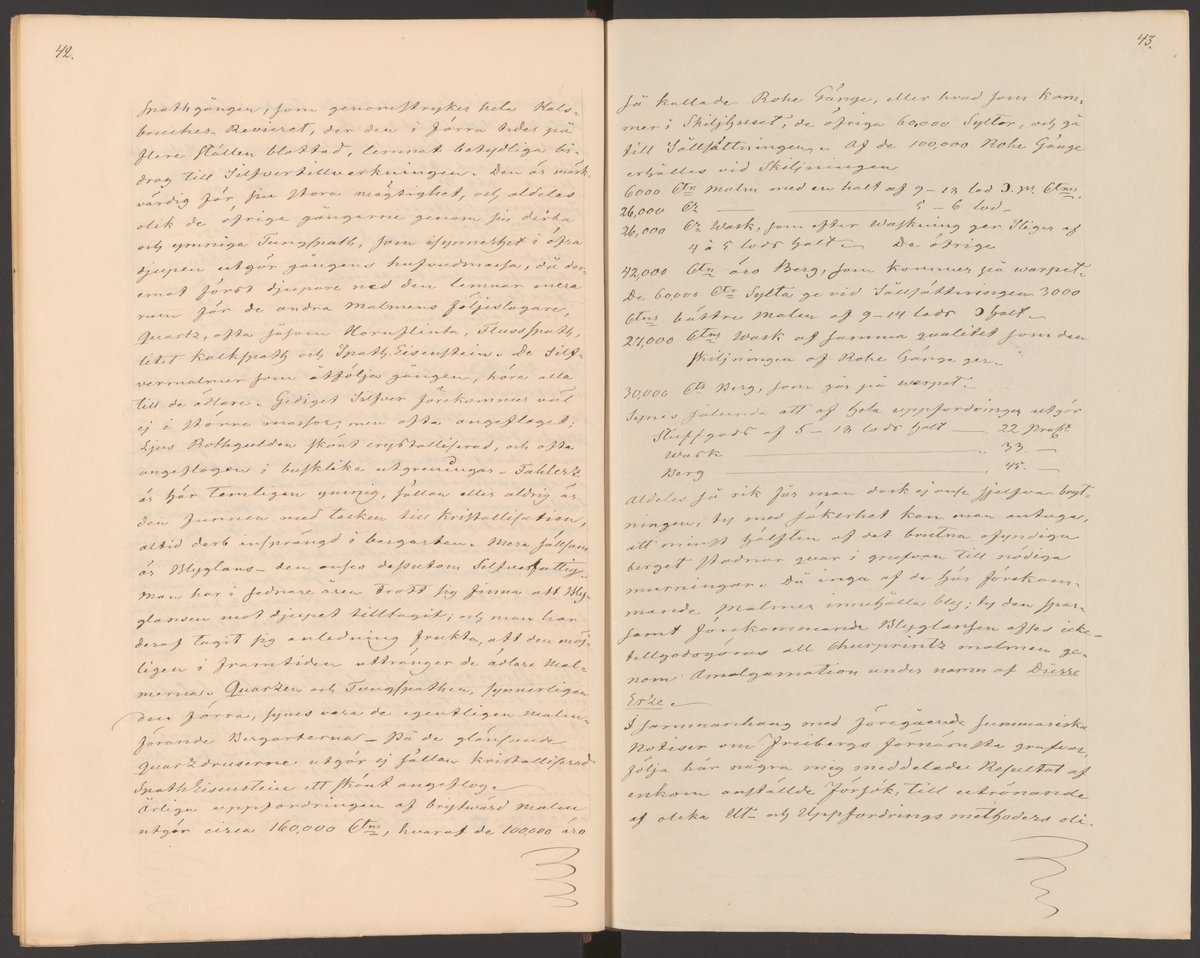 42.
Spathgången, som genomstryker hela Hals-
bruckes Revieret, der den i förra tider på
flere ställen blottad, lemnat betydliga bi-
drag till Silfvertillverkningen. Den är märk-
värdig för sin stora mägtighet, och aldeles
olik de öfrige gångarne genom sin derba
och ymniga Tungspath, som isynnerhet i öfra
djupen utgör gångens hufvudmassa, då der-
emot först djupare ned den lemnar mera
rum för de andra malmens följeslagare,
Quartz, ofta såsom Hornflinta, Flusspath,
litet kalkspath och Spath Eisenstein. De Silf-
vermalmer som åtfölja gången, höra alla
till de ädlare. Gediget Silfver förekommer väl
ej i större massor, men ofta angeflogt;
Ljus Rothgulden skönt crystalliserad, och ofta
angeflogen i busklika utgreningar. Fahlerz
är här temligen ymnig, sällan eller aldrig är
den funnen med tecken till kristallisation,
altid derb insprängd i bergarten. Mera sällsam
är Blyglans – den anses dessutom Silfverfattig.
Man har i sednare åren trott sig finna att Bly-
glansen mot djupet tilltagit; och man har
deraf tagit sig anledning frukta, att den möj-
ligen i framtiden uttränger de ädlare Mal-
merna. Quarzen och Tungspathen, synnerligen
den förra, synes vara de egentligen malm-
förande Bergarterna – På de glänsande
Quarzdruserne utgör ej sällan kristalliserad
SpathEisenstein ett skönt angefloge
Årliga uppfordringen af brytward malm
utgör circa 160,000 Ctnr, hvaraf de 100,000 äro
43.
så kallade Rohe Gänge, eller hvad som kom-
mer i Skiljhuset, de öfriga 60,000 Syltor, och gå
till Sällsättningen. Af de 100,000 Rohe Gänge
erhålles vid Skiljningen
6000 Ctn malm med en halt af 9–13 lod
26,000 Ctr — — 5–6 lod
26,000 Ctr Wask, som efter Waskning ger Sliger af
4 à 5 lods halt – De öfrige
42,000 Ctn äro Berg, som kommer på warpet.
De 60,000 Ctr Sylta ge vid Sällsättningen 3000
Ctnr bättre Malm af 9–14 lods halt –
27,000 Ctnr Wask af samma qualitet som den
skiljningen af Rohe Gänge ger.
30,000 Ctr Berg, som går på warpet.
Synes sålunda att af hela uppfordringen utgör
Stuffgods af 5–13 lods halt — 22 proCt
Wask — 33. —
Berg — 45. —
Aldeles så rik får man dock ej anse sjelfva bryt-
ningen, ty med säkerhet kan man antaga,
att minst hälften af det brutna ofyndiga
berget stadnar quar i grufvan till nödiga
murningar. Då inga af de här förekom-
mande Malmer innehålla bly; ty den spar-
samt förekommande Blyglansen anses icke
tillgodogöras all Churprintz malmen ge-
nom Amalgamation under namn af Dürre
Erze.
I sammanhang med föregående summariska
Notiser om Freibergs förnämsta grufvor,
följa här några mig meddelade Resultat af
enkom anställde försök, till utrönande
af olika Ut- och Uppfordrings methoders oli-